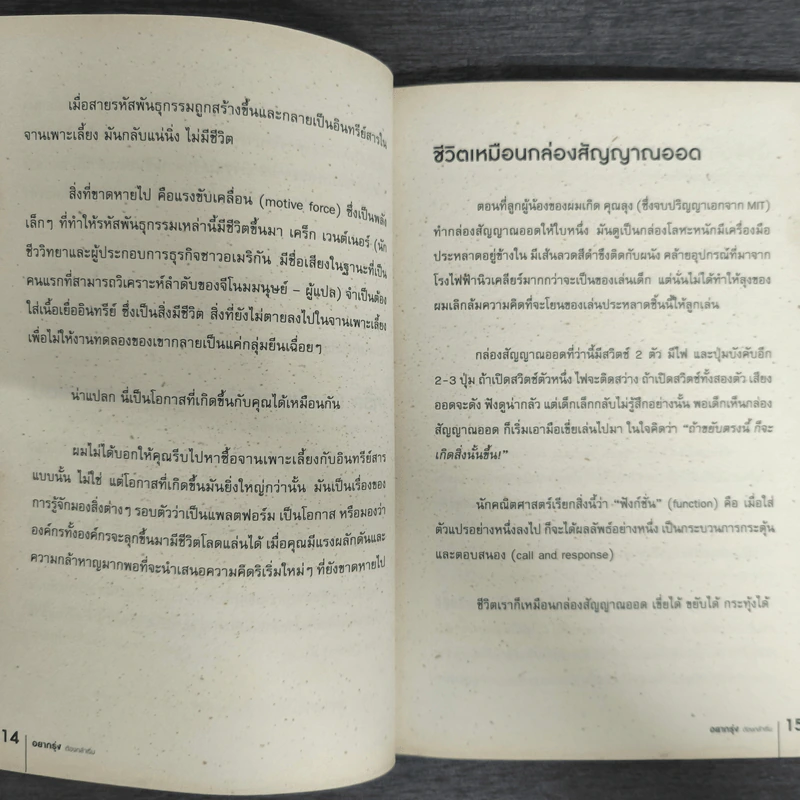 เมื่อสายรหัสพันธุกรรมถูกสร้างขึ้นและกลายเป็นอินทรีย์สารใน
จานเพาะเลี้ยง มันกลับแน่นิ่ง ไม่มีชีวิต
สิ่งที่ขาดหายไป คือแรงขับเคลื่อน (motive force) ซึ่งเป็นพลัง
เล็กๆ ที่ทำให้รหัสพันธุกรรมเหล่านี้มีชีวิตขึ้นมา เคร็ก เวนต์เนอร์ (นัก
ชีววิทยาและผู้ประกอบการธุรกิจชาวอเมริกัน มีชื่อเสียงในฐานะที่เป็น
คนแรกที่สามารถวิเคราะห์ลำดับของจีโนมมนุษย์ – ผู้แปล) จำเป็นต้อง
ใส่เนื้อเยื่ออินทรีย์ ซึ่งเป็นสิ่งมีชีวิต สิ่งที่ยังไม่ตายลงไปในจานเพาะเลี้ยง
เพื่อไม่ให้งานทดลองของเขากลายเป็นแค่กลุ่มยีนเฉื่อยๆ
น่าแปลก นี่เป็นโอกาสที่เกิดขึ้นกับคุณได้เหมือนกัน
ผมไม่ได้บอกให้คุณรีบไปหาซื้อจานเพาะเลี้ยงกับอินทรีย์สาร
แบบนั้น ไม่ใช่ แต่โอกาสที่เกิดขึ้นมันยิ่งใหญ่กว่านั้น มันเป็นเรื่องของ
การรู้จักมองสิ่งต่างๆ รอบตัวว่าเป็นแพลตฟอร์ม เป็นโอกาส หรือมองว่า
องค์กรทั้งองค์กรจะลุกขึ้นมามีชีวิตโลดแล่นได้ เมื่อคุณมีแรงผลักดันและ
ความกล้าหาญมากพอที่จะนำเสนอความคิดริเริ่มใหม่ๆ ที่ยังขาดหายไป
14
อยากรุ่ง ต้องกล้าเริ่ม
ชีวิตเหมือนกล่องสัญญาณออด
ตอนที่ลูกผู้น้องของผมเกิด คุณลุง (ซึ่งจบปริญญาเอกจาก MIT)
ทำกล่องสัญญาณออดให้ใบหนึ่ง มันดูเป็นกล่องโลหะหนักมีเครื่องมือ
ประหลาดอยู่ข้างใน มีเส้นลวดสีดำขึงติดกับผนัง คล้ายอุปกรณ์ที่มาจาก
โรงไฟฟ้านิวเคลียร์มากกว่าจะเป็นของเล่นเด็ก แต่นั่นไม่ได้ทำให้ลุงของ
ผมเลิกล้มความคิดที่จะโยนของเล่นประหลาดชิ้นนี้ให้ลูกเล่น
กล่องสัญญาณออดที่ว่านี้มีสวิตช์ 2 ตัว มีไฟ และปุ่มบังคับอีก
2-3 ปุ่ม ถ้าเปิดสวิตช์ตัวหนึ่ง ไฟจะติดสว่าง ถ้าเปิดสวิตช์ทั้งสองตัว เสียง
ออดจะดัง ฟังดูน่ากลัว แต่เด็กเล็กกลับไม่รู้สึกอย่างนั้น พอเด็กเห็นกล่อง
สัญญาณออด ก็เริ่มเอามือเขี่ยเล่นไปมา ในใจคิดว่า “ถ้าขยับตรงนี้ ก็จะ
เกิดสิ่งนั้นขึ้น!”
นักคณิตศาสตร์เรียกสิ่งนี้ว่า “ฟังก์ชั่น” (function) คือ เมื่อใส่
ตัวแปรอย่างหนึ่งลงไป ก็จะได้ผลลัพธ์อย่างหนึ่ง เป็นกระบวนการกระตุ้น
และตอบสนอง (call and response)
ชีวิตเราก็เหมือนกล่องสัญญาณออด เขี่ยได้ ขยับได้ กระทุ้งได้
อยากรุ่ง ต้องกล้าเริ่ม
15